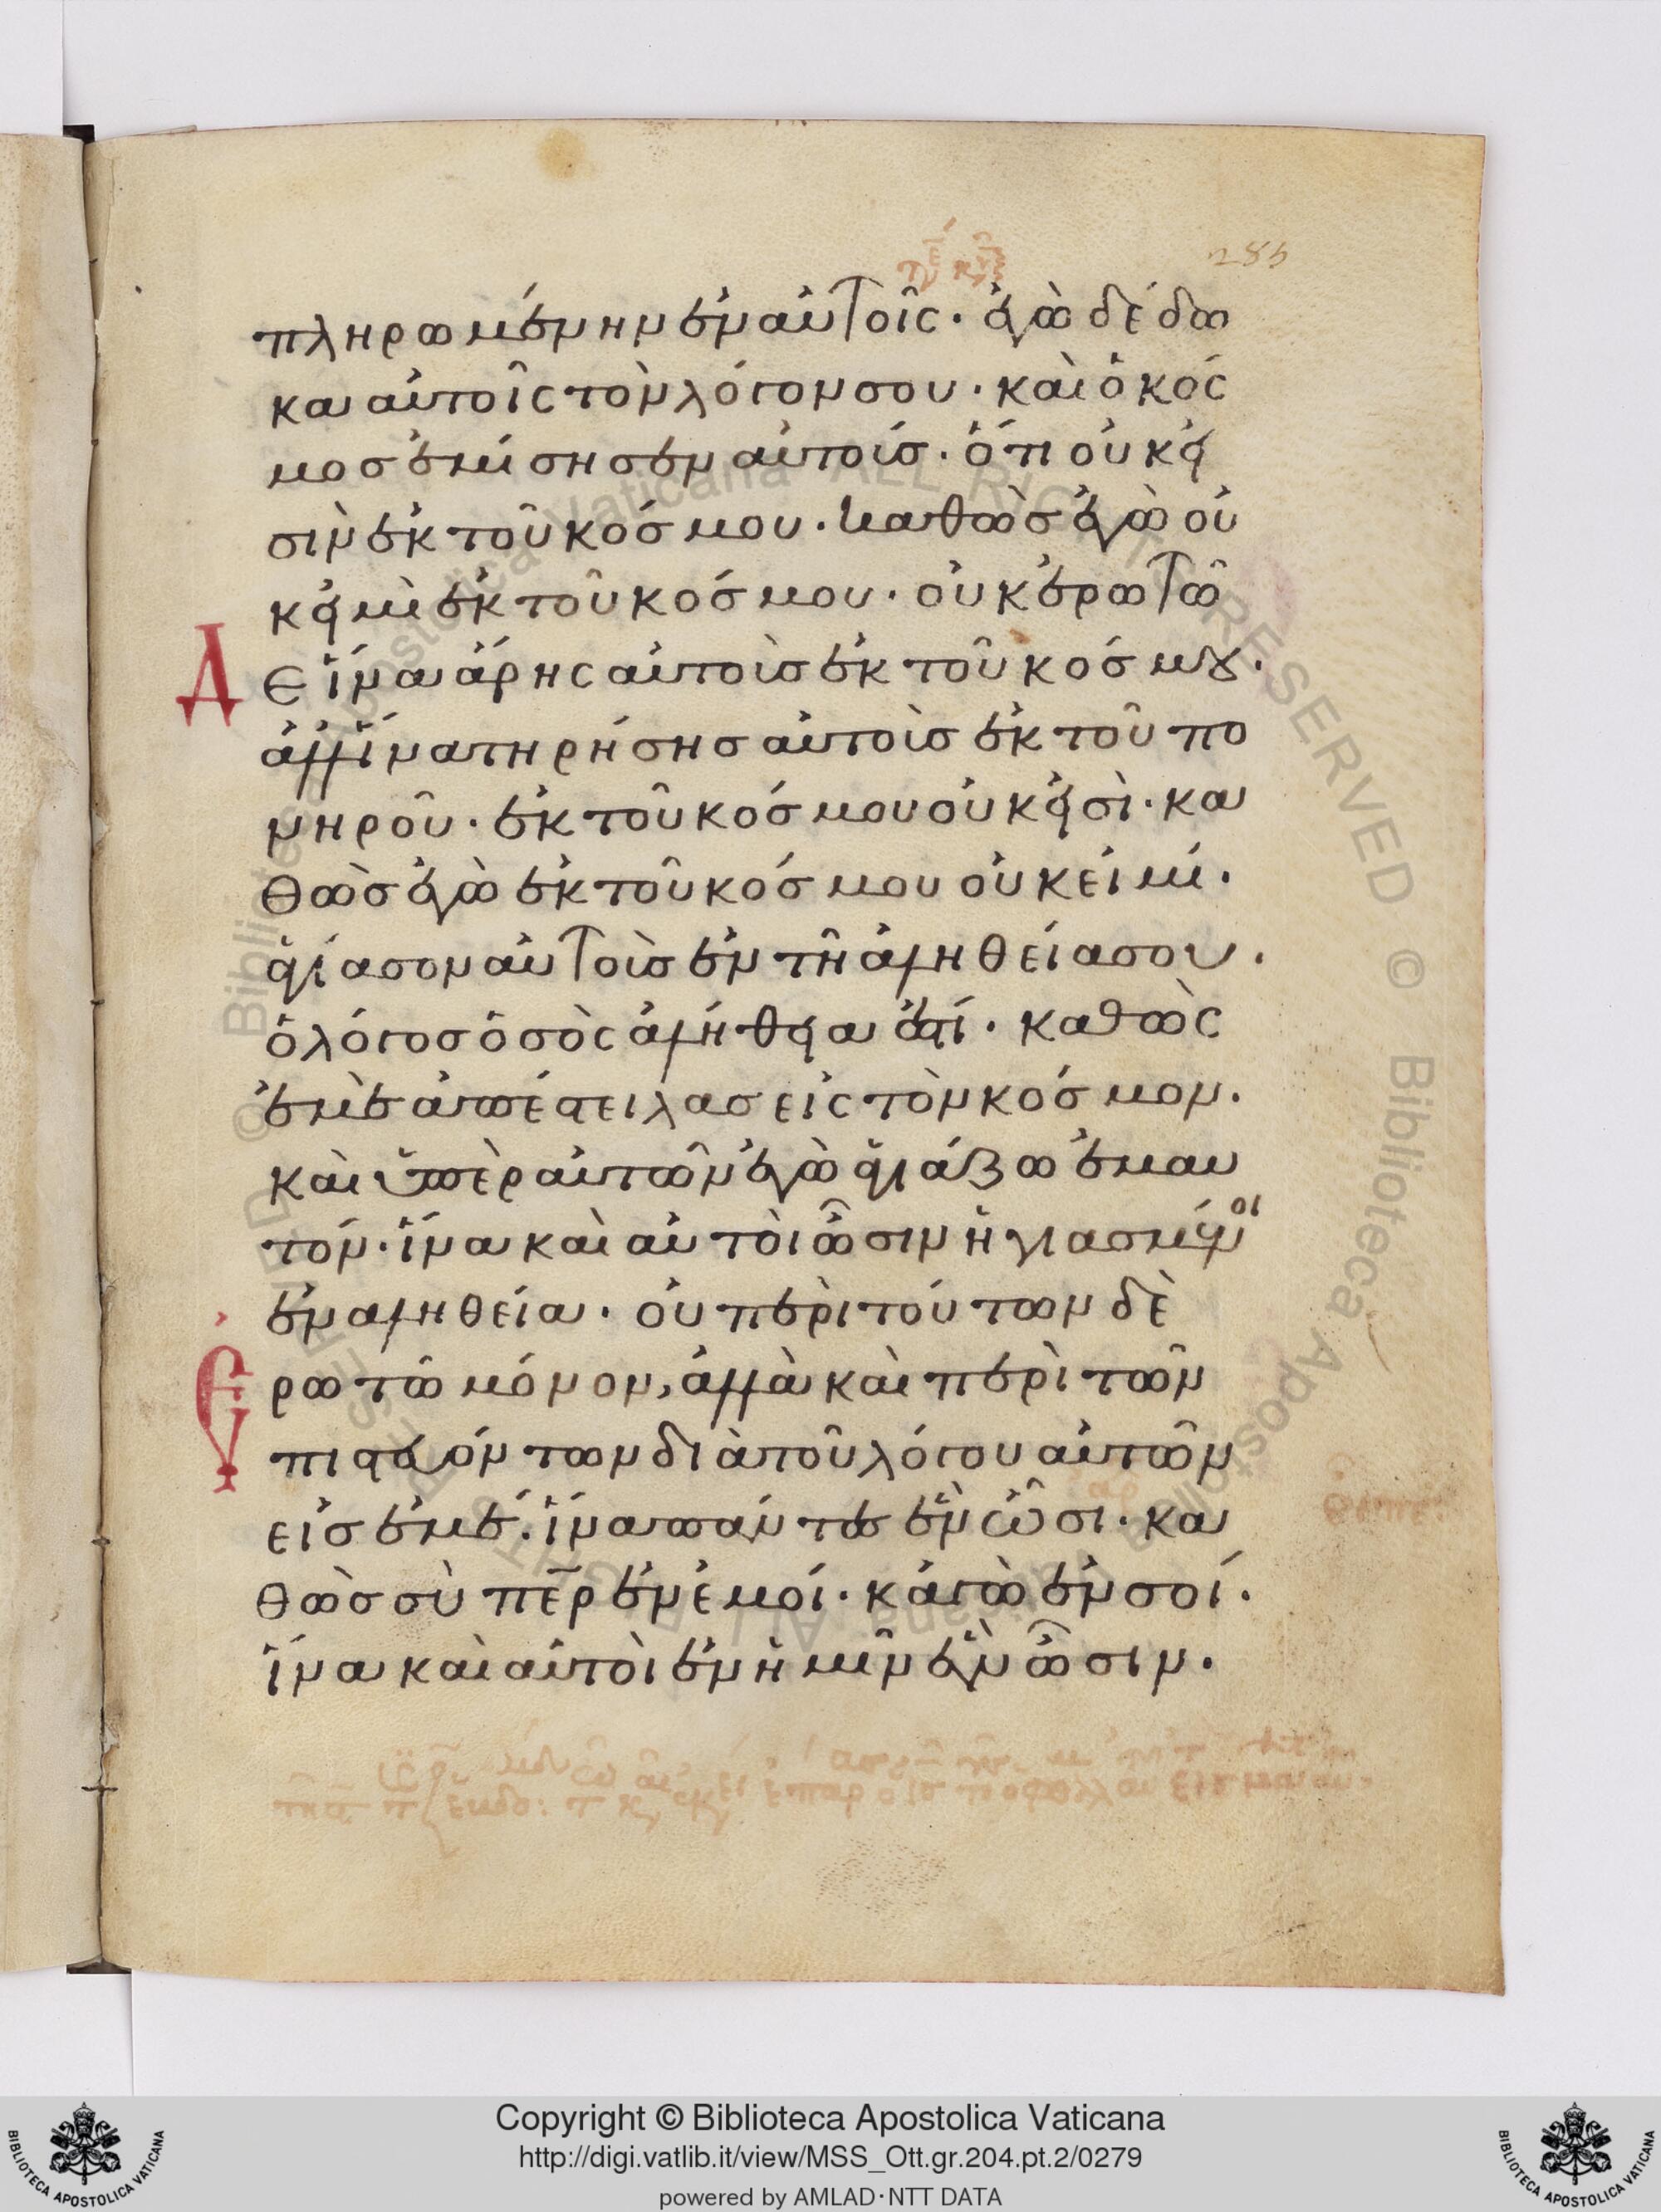 285
πληρωμένην ἐν αὐτοῖς· ἐγὼ δέδω
κα αὐτοῖς τὸν λόγον σου· καὶ ὁ κόσ
μος ἐμίσησεν αὐτούσ· ὅτι οὐκ εἰ
σὶν ἐκ τοῦ κόσμου· καθὼσ ἐγὼ οὐ
κ εἰμὶ ἐκ τοῦ κόσμου· οὐκ ἐρωτῶ
Α
ἵνα ἄρης αὐτοὺσ ἐκ τοῦ κόσμου·
ἀλλ' ἵνα τηρήσησ αὐτοὺσ ἐκ τοῦ πο
νηροῦ· ἐκ τοῦ κόσμου οὐκ εἰσὶ· κα
θὼσ ἐγὼ ἐκ τοῦ κόσμου οὐκ εἰμί·
ἁγίασον αὐτοὺσ ἐν τῆ ἀληθεία σου·
ὁ λόγοσ ὁ σὸς ἀλήθεια ἐστί· καθὼς
ἐμὲ ἀπέστειλασ εἰς τὸν κόσμον·
καὶ ὑπὲρ αὐτῶν ἐγὼ ἁγιάζω ἐμαυ
τόν· ἵνα καὶ αὐτοὶ ὦσιν ἡγιασμένοι
ἐν αληθεία· οὐ περὶ τούτων δὲ
Ε
ρωτῶ μόνον, ἀλλὰ καὶ περὶ τῶν
πιστευόντων διὰ τοῦ λόγου αὐτῶν
εἰσ ἐμέ· ἵνα παντεσ ἓν ὦσι· κα
θὼσ σὺ περ ἐν ἐμοί· κἀγὼ ἐν σοί·
ἵνα καὶ αὐτοὶ ἐν ἡμῖν ἓν ὦσιν·
Copyright © Biblioteca Apostolica Vaticana
http://digi.vatlib.it/view/MSS_Ott.gr.204.pt.2/0279
powered by AMLAD·NTT DATA
BIBLIOTECA APOSTOLICA VATICANA
BIBLIOTECA APOSTOLICA VATICANA